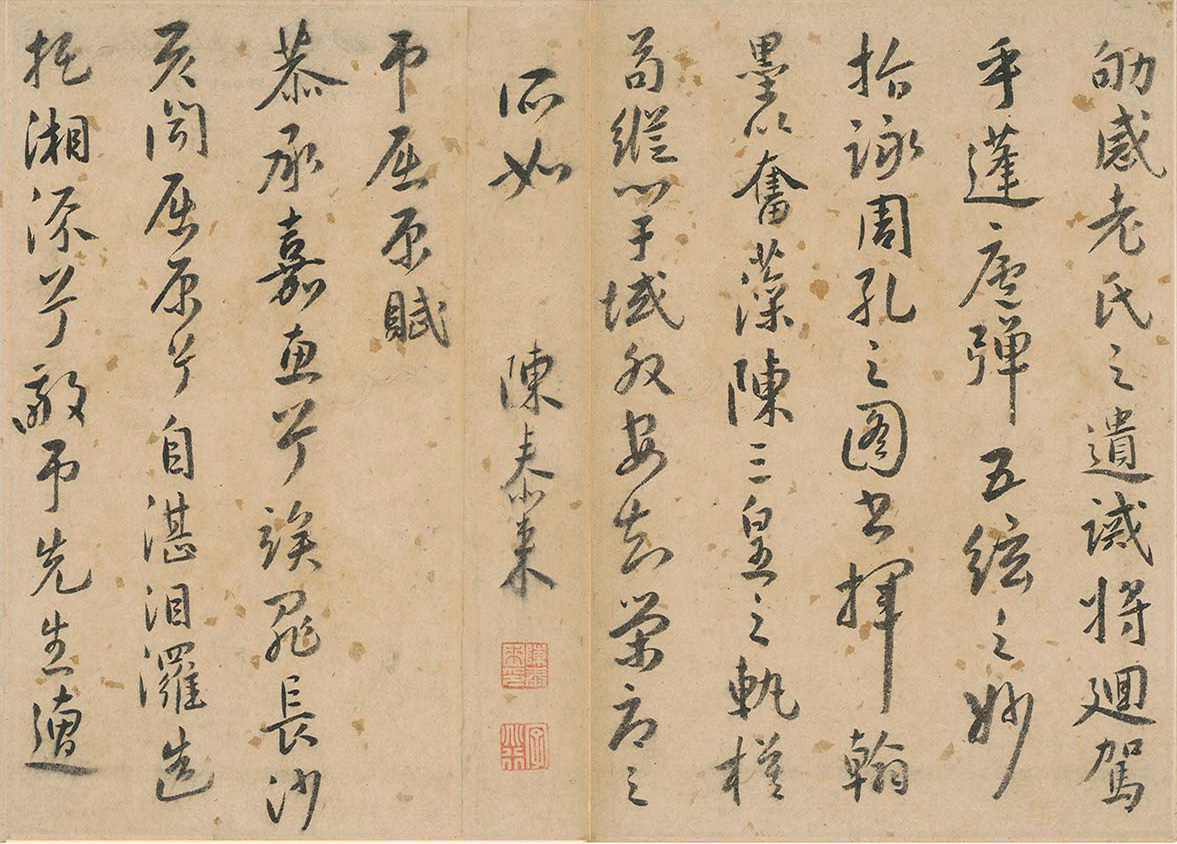 劬感老氏之遺誡將廻駕
乎蓬廬彈五絃之妙
指詠周孔之图書揮翰
墨以奮藻陳三皇之軌模
苟縱心于域外安知榮辱之
所如 陳泰來
弔屈原賦
恭承嘉惠兮竢罪長沙
仄聞屈原兮自湛汨羅造
托湘流兮敬弔先生遭